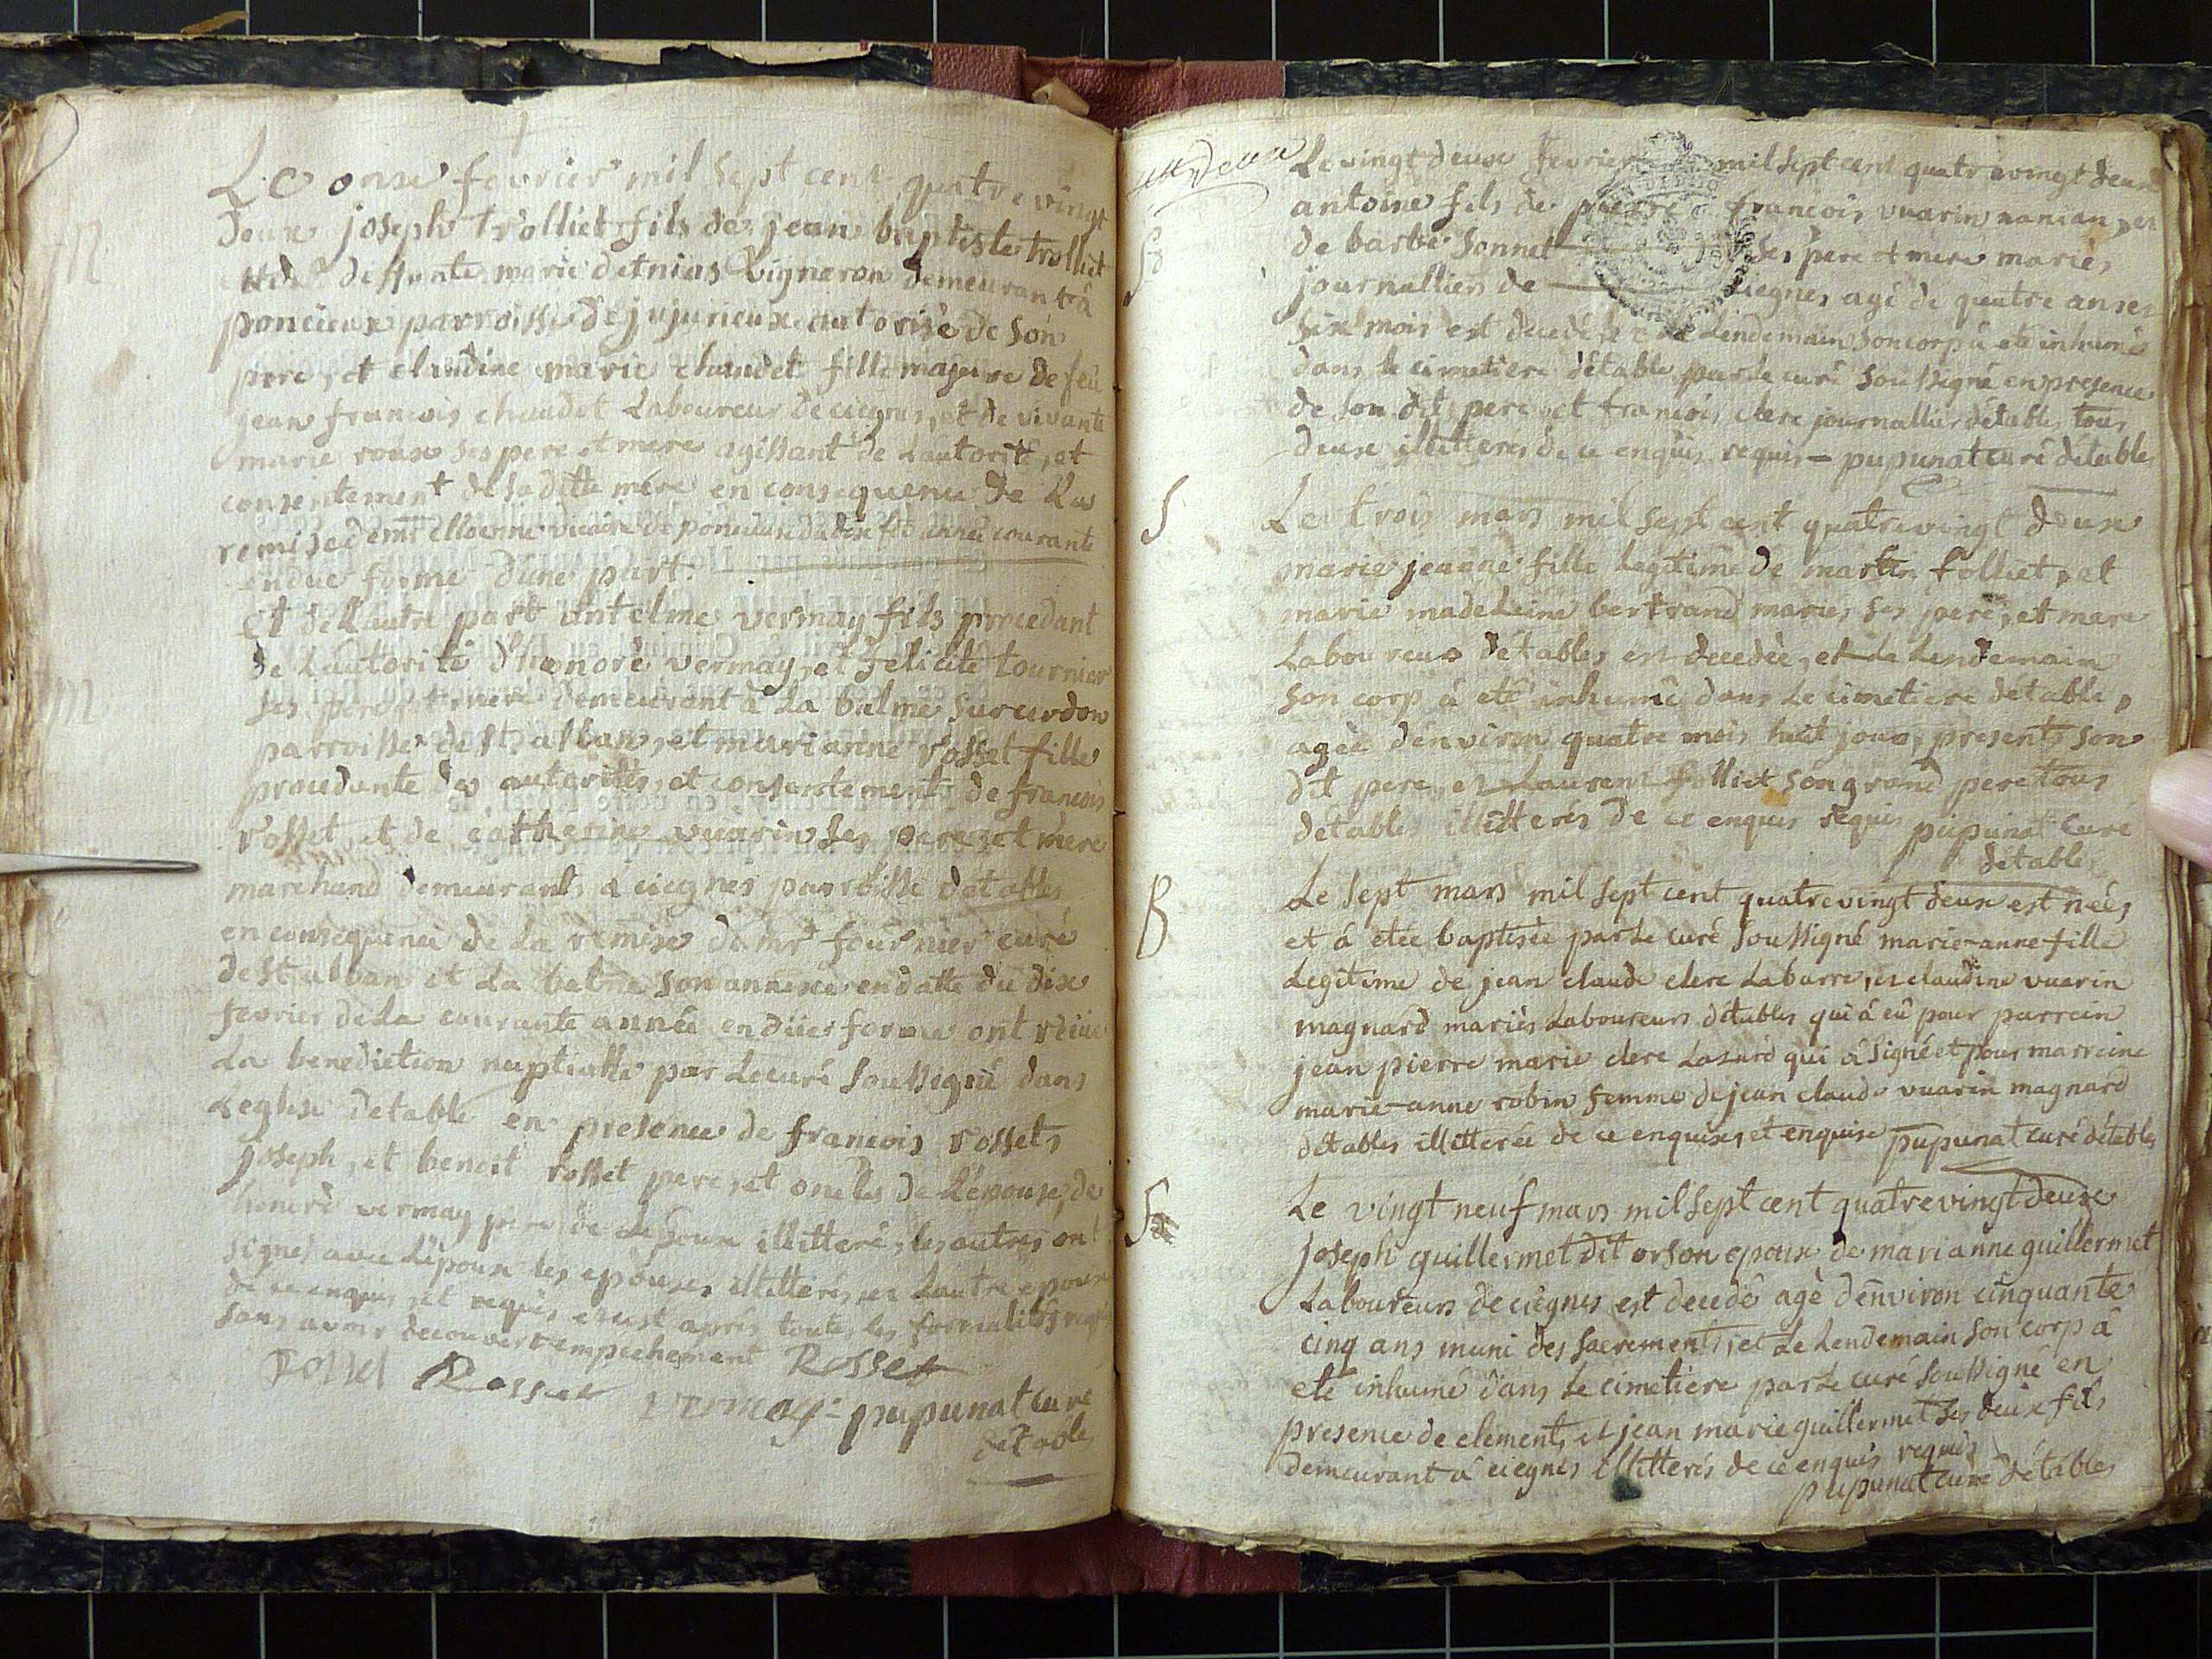 Le onze fevrier mil sept cent quatre vingt
deux joseph trolliet fils de jean baptiste trolliet
et de deffunte marie vigneron demeurant à
poncieux parroisse de jujurieux autorisé de son
pere, et claudine marie chaudet fille majeure de feu
jean francois chaudet Laboureur de ciegnes, et de vivante
marie roux ses pere et mere agissant de Lautorité, et
consentement de sa ditte mere en consequence de La
remise de mr vicaire de poncieux du dix annee courante
en due forme dune part.
Et de Lautre part antelme vermay fils procedant
de Lautorité d'honoré vermay, et felicité tournier
ses pere et mere demeurant à La balme sur cerdon
parroisse de st alban, et marianne rosset fille
procedante des autorités, et consentement de francois
rosset, et de catherine vuarin ses pere et mere
marchand demeurants à ciegnes parroisse détables
en consequence de La remise de mr fournier curé
de st alban et La balme son annexe en datte du dix
fevrier de La courante année en düe forme ont reçue
La benediction nuptialle par Le curé soussigné dans
Leglise detable en presence de francois rosset,
joseph, et benoit rosset pere, et oncles de Lépouse, de
honoré vermay pere de Lepoux illitteré, les autres ont
signes avec Lépoux les epouses illitterés, et Lautre epoux
de ce enquis, et requis et cest après toutes les formalités
sans avoir decouvert empechement
Rosset Rosset Rosset
vermay pupunat curé
détable
Le vingt deux fevrier mil sept cent quatre vingt deux
antoine fils de pierre francois vuarin nanian, et
de barbe sonnet ses pere et mere mariés
journalliers de ciegnes agé de quatre ans et
six mois est decedé, et Le Lendemain son corp à eté inhumé
dans le cimetiere détable par le curé soussigné en presence
de son dit pere, et francois clerc journallier détables tous
deux illitterés de ce enquis requis - pupunat curé détables
S
Le trois mars mil sept cent quatre vingt deux
marie jeanne fille legitime de martin folliet, et
marie madeleine bertrand mariés ses pere, et mere
Laboureurs détables est decedée, et le Lendemain
son corp à eté inhumé dans Le cimetiere détable,
agée d'environ quatre mois huit jours, presents son
dit pere, et Laurent folliet son grand pere tous
détables illitterés de ce enquis requis pupunat curé
détables
B
Le sept mars mil sept cent quatre vingt deux est née,
et à etée baptisée par Le curé soussigné marie-anne fille
Legitime de jean claude clerc Labarre, et claudine vuarin
magnard mariés Laboureurs détables qui à eû pour parrein
jean pierre marie clerc qui à signé et pour marreine
marie-anne robin femme de jean claude vuarin magnard
détables illitterée de ce enquise, et enquise pupunat curé détables
Le vingt neuf mars mil sept cent quatre vingt deux
joseph guillermet dit orson epoux de marianne guillermet
Laboureurs de ciegnes est decedé agé d'environ cinquante
cinq ans muni des sacrements, et Le Lendemain son corp à
eté inhumé dans Le cimetiere par Le curé soussigné en
presence de clement, et jean marie guillermet ses deux fils
demeurant à ciegnes illitterés de ce enquis requis
pupunat curé détables